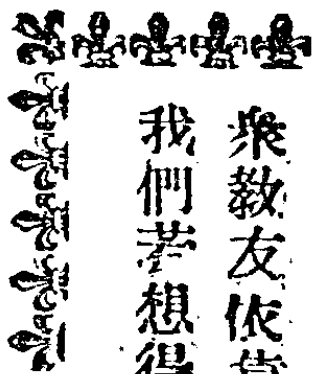 衆教友依
我們若想得